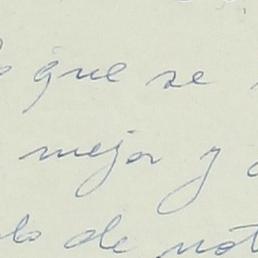 que se
mejor y
de not